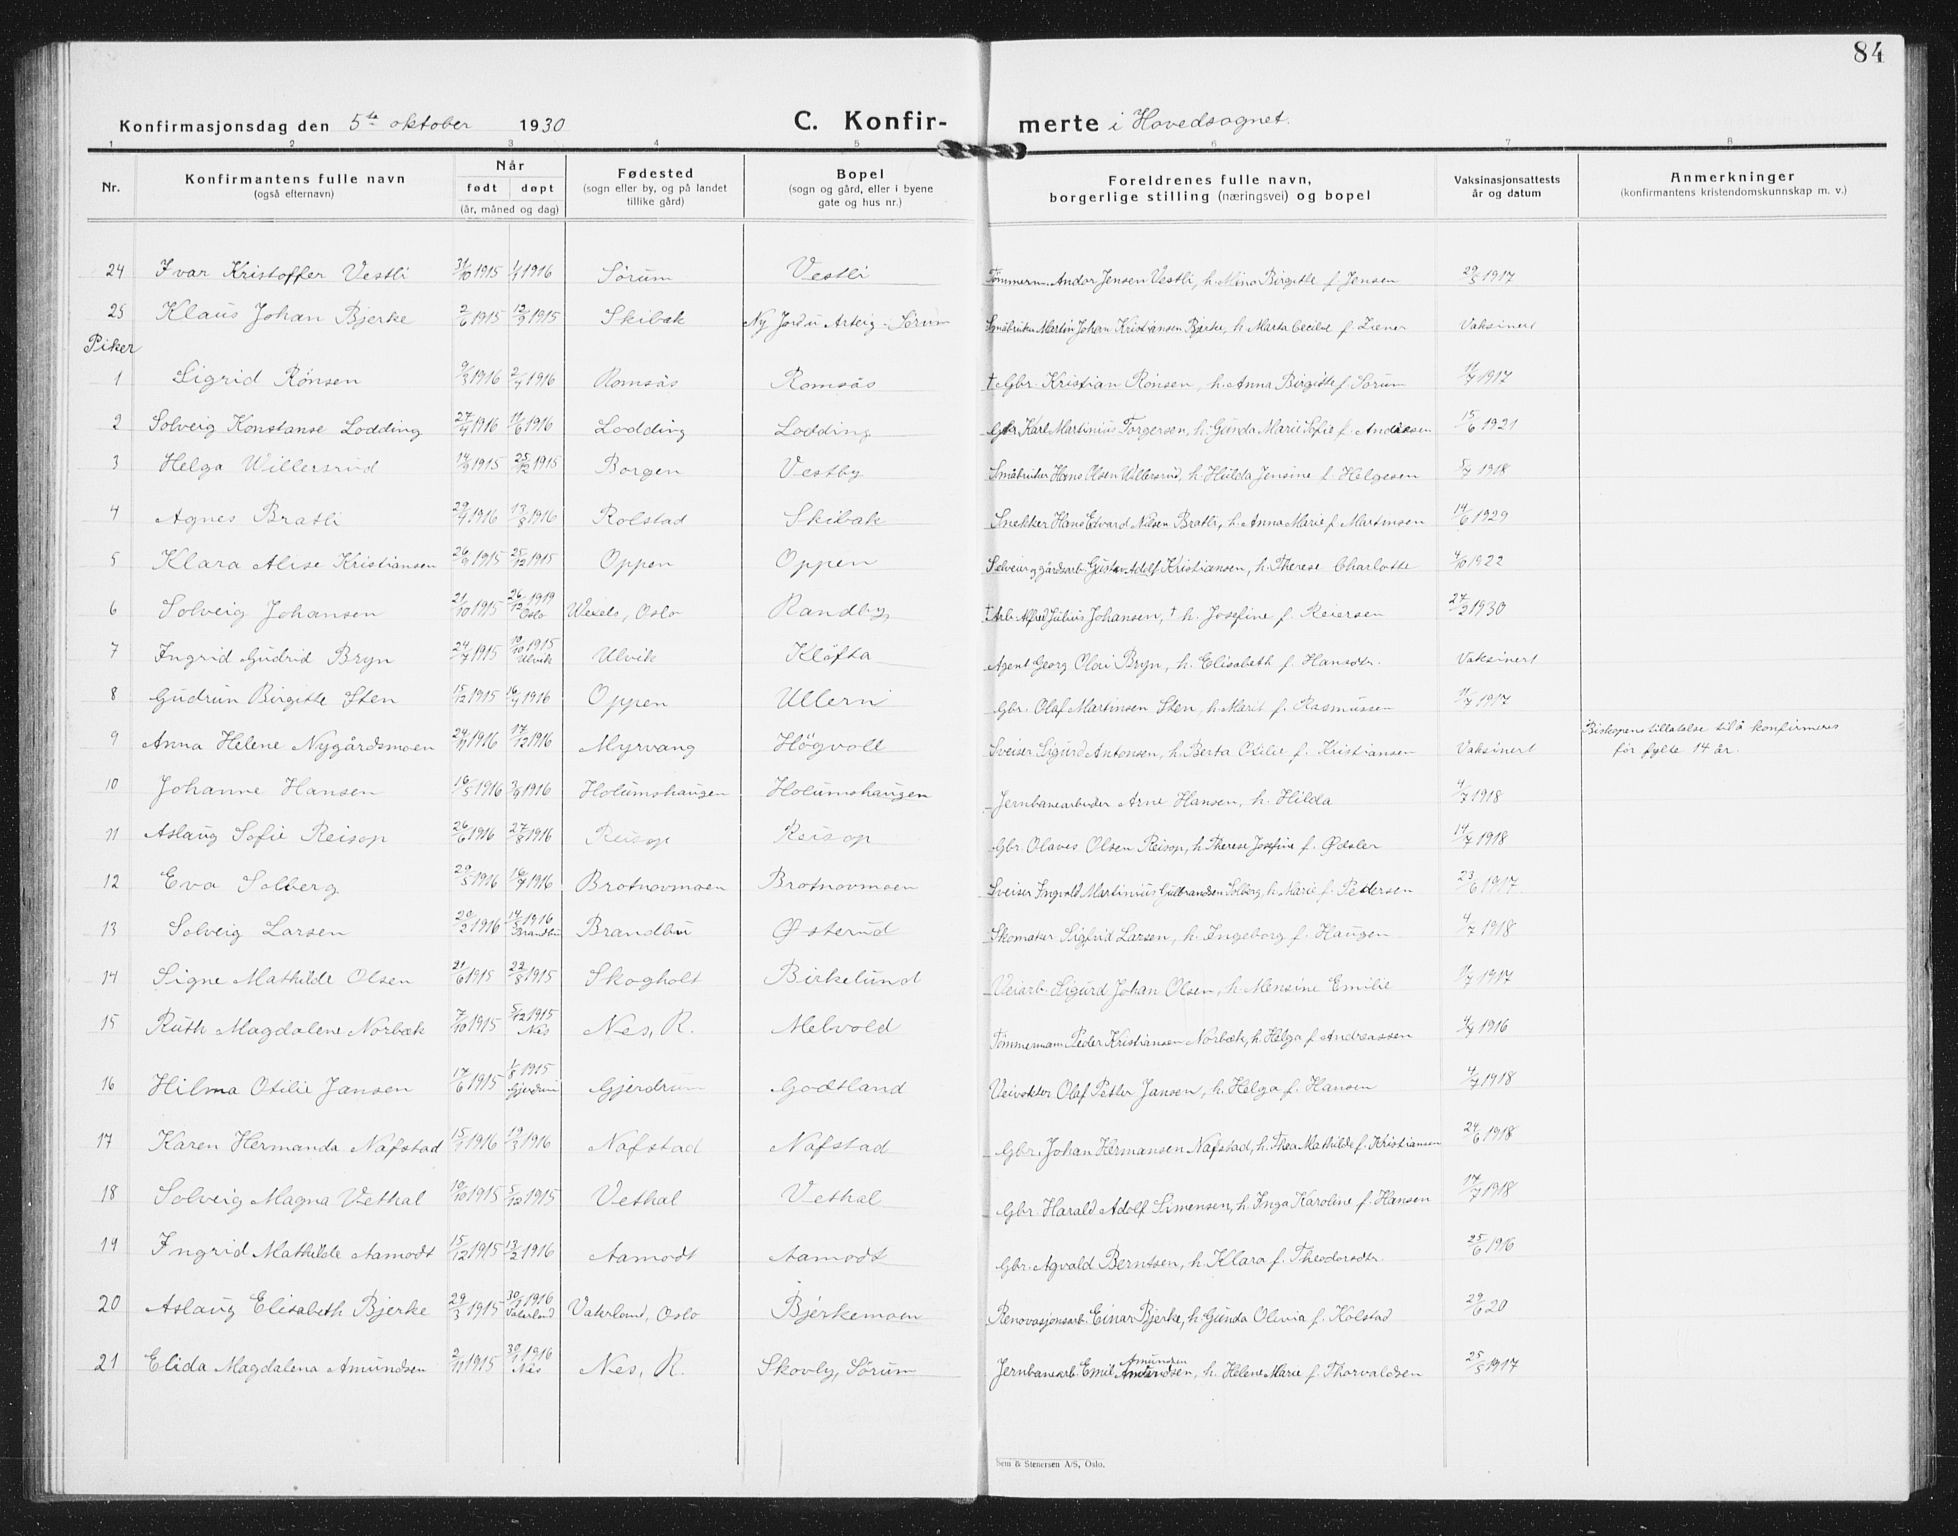 84
Konfirmasjonsdag den 5te oktober 1930 C. Konfir- merte i Hovedsognet.
1 2 3 4 5 6 7 8
Nr. Konfirmantens fulle navn (også efternavn) Når født døpt (år, måned og dag) Fødested (sogn eller by, og på landet tillike gård) Bopel (sogn og gård, eller i byene gate og hus nr.) Foreldrenes fulle navn, borgerlige stilling (næringsvei) og bopel Vaksinasjonsattests år og datum Anmerkninger (konfirmantens kristendomskunnskap m. v.)
24 Ivar Kristoffer Vestli 31/10 1915 1/1 1916 Sørum Vestli Tømmerm. Andor Jensen Vestli, h. Mina Birgitte f. Jensen 29/5 1917
25 Klaus Johan Bjerke 2/6 1915 12/9 1915 Skibak Ny Jordu Arteig - Sørum Småbruker Martin Johan Kristiansen Bjerke, h. Marta Cecilie f. Ziener Vaksinert
Piker
1 Sigrid Rønsen 9/3 1916 2/4 1916 Romsås Romsås † Gbr. Kristian Rønsen, h. Anna Birgitte f. Sørum 11/7 1917
2 Solveig Konstanse Lodding 27/4 1916 11/6 1916 Lodding Lodding Gbr. Karl Martinius Torgersen, h. Gunda Marie Sofie f. Andresen 15/6 1921
3 Helga Willersrud 14/9 1915 25/12 1915 Borgen Vestby Småbruker Hans Olsen Willersrud, h. Hulda Jensine f. Helgesen 5/7 1918
4 Agnes Bratli 29/4 1916 13/8 1916 Rolstad Skibak Snekker Hans Edvard Nilsen Bratli, h. Anna Marie f. Martinsen 14/6 1929
5 Klara Alise Kristiansen 26/9 1915 25/12 1915 Oppen Oppen Selveier og gårdsarb. Gustav Adolf Kristiansen, h. Therese Charlotte 4/10 1922
6 Solveig Johansen 21/10 1915 26/12 1919 Oslo Wexels, Oslo Randby, † Arb. Alfred Julius Johansen, † h. Josefine f. Reiersen 27/3 1930
7 Ingrid Gudrid Bryn 24/7 1915 10/10 1915 Ulvik Ulvik Kløfta Agent Georg Olai Bryn, h. Elisabeth f. Hansdtr. Vaksinert
8 Gudrun Birgitte Sten 15/12 1915 16/4 1916 Oppen Ullern Gbr. Olaf Martinsen Sten, h. Marit f. Rasmussen 11/7 1917
9 Anna Helene Nygårdsmoen 24/11 1916 17/12 1916 Myrvang Høgvoll Sveiser Sigurd Antonsen, h. Berta Otilie f. Kristiansen Vaksinert Biskopens tillatelse til å konfirmeres
før fylte 14 år.
10 Johanne Hansen 16/5 1916 3/9 1916 Holumshaugen Holumshaugen Jernbanearbeider Arne Hansen, h. Hilda 4/7 1918
11 Aslaug Sofie Reisop 26/6 1916 27/8 1916 Reisop Reisop Gbr. Olaves Olsen Reisop, h. Therese Josefine f. Ødsler 14/7 1918
12 Eva Solberg 29/5 1916 16/7 1916 Brotnovmoen Brotnovmoen Sveiser Ingvald Martinius Gulbrandsen Solberg, h. Marie f. Pedersen 23/6 1917
13 Solveig Larsen 20/2 1916 14/5 1916 Brandbu Brandbu Østerud Skomaker Sigfrid Larsen, h. Ingeborg f. Haugen 4/7 1918
14 Signe Mathilde Olsen 21/6 1915 22/8 1915 Skogholt Birkelund Veiarb. Sigurd Johan Olsen, h. Mensine Emilie 11/7 1917
15 Ruth Magdalene Norbæk 7/10 1915 5/12 1915 Nes Nes, R. Melvold Tømmermann Peder Kristiansen Norbæk, h. Helga f. Andreassen 4/7 1916
16 Hilma Otilie Jansen 17/6 1915 1/8 1915 Gjerdrum Gjerdrum Godtland Veivokter Olaf Petter Jansen, h. Helga f. Hansen 4/7 1918
17 Karen Hermanda Nafstad 15/1 1916 19/3 1916 Nafstad Nafstad Gbr. Johan Hermansen Nafstad, h. Thea Mathilde f. Kristiansen 24/6 1918
18 Solveig Magna Vethal 19/10 1915 5/12 1915 Vethal Vethal Gbr. Harald Adolf Simensen, h. Inga Karoline f. Hansen 17/7 1918
19 Ingrid Mathilde Aamodt 15/12 1915 13/2 1916 Aamodt Aamodt Gbr. Agvald Berntsen, h. Klara f. Theodorsdtr. 25/6 1916
20 Aslaug Elisabeth Bjerke 29/3 1915 30/1 1916 Vaterland Vaterland, Oslo Bjerkemoen Renovasjonsarb. Einar Bjerke, h. Gunda Olivia f. Kolstad 29/6 20
21 Elida Magdalena Amundsen 2/11 1915 30/1 1916 Nes Nes, R. Skovly, Sørum Jernbanearb. Emil Amundsen Amundsen, h. Helene Marie f. Thorvaldsen 25/5 1917
Sem & Stenersen A/S, Oslo.